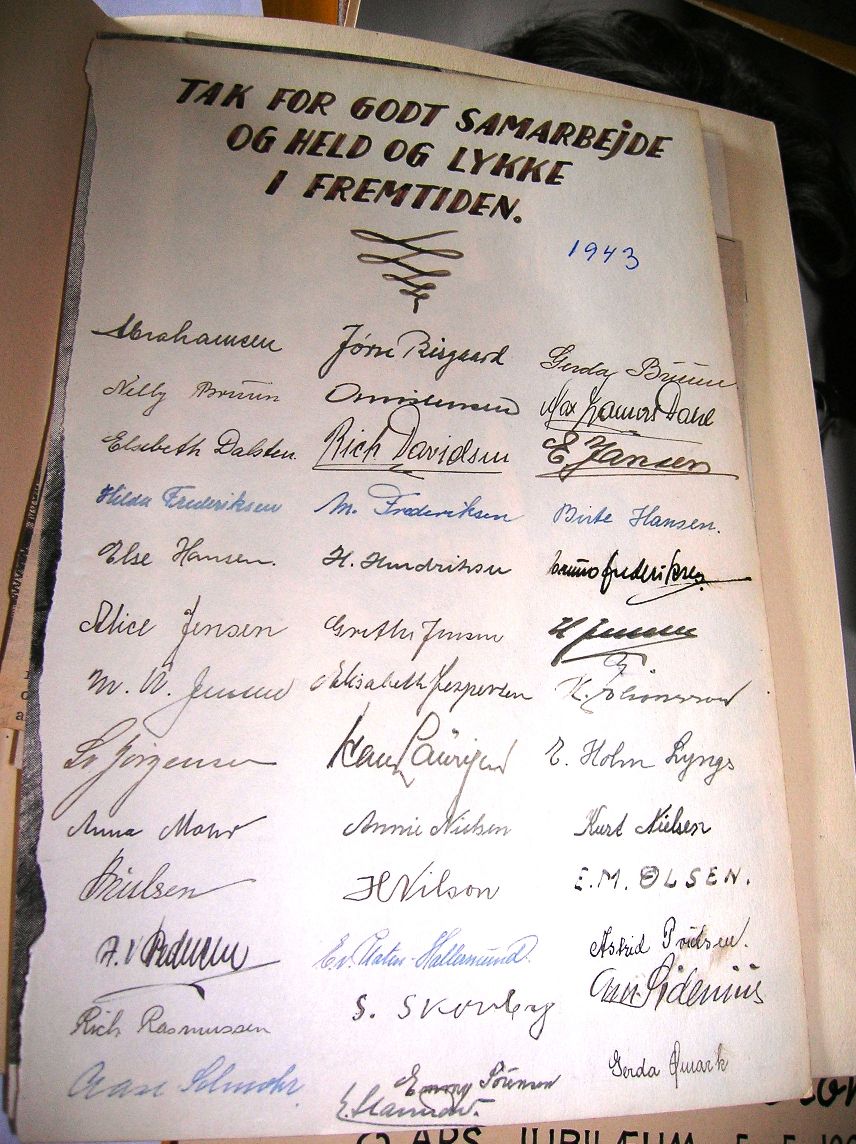 TAK FOR GODT SAMARBEJDE
OG HELD OG LYKKE
I FREMTIDEN.
1943
Abrahamsen Jørn Bisgaard Gerda Bruun
Nelly Bruun Dahl
Elsebeth Dalsten. Rich Davidsen E Jansen
Helda Frederiksen M. Frederiksen Birte Hansen.
Else Hansen. H. Hendriksen Bruno Frederiksen
Alice Jensen Grethe Jensen H Jensen
M. Jensen Elisabeth Jespersen K.
Jørgensen E. Holm Lyngs
Anna Mohr Annie Nielsen Kurt Nielsen
Nielsen H Nilson E.M. OLSEN.
A.V Pedersen Hallemund. Astrid
Rich Rasmussen S. Skovberg Sidenius
Aase Emmy Sörensen Gerda Qmark
E.
ÅRS JUBILÆUM